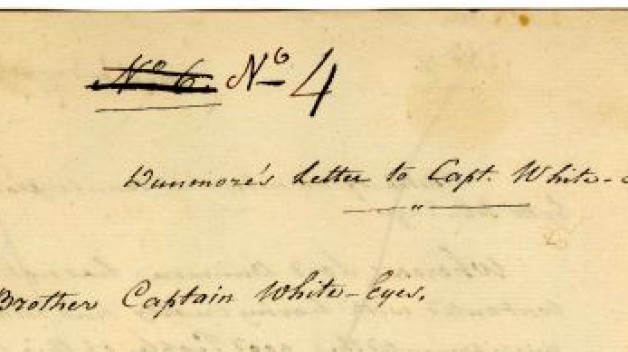 No 6. No 4
Dunmore's Letter to Capt. White-
Brother Captain White-Eyes.